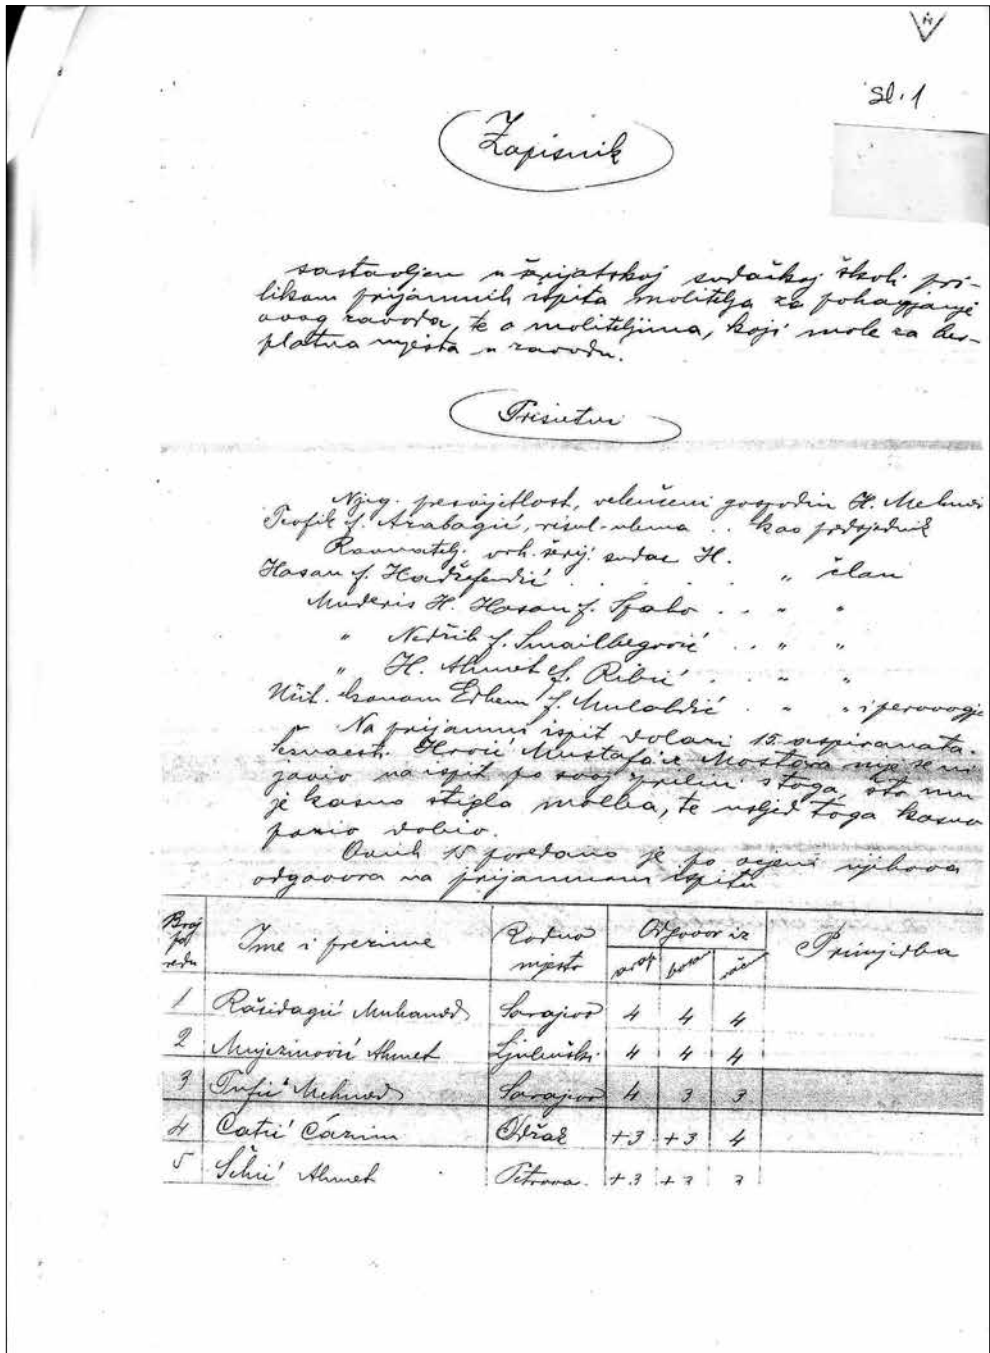 sl. 1
Zapisnik
sastavljen u šerijatskoj sudačkoj školi pri-
likom prijamnih ispita molitelja za pohagjanje
ovog zavoda, te o moliteljima, koji mole za bes-
platna mjesta u zavodu.
Prisutni
Njeg. presvjetlost, veleučeni gospodin H. Mehmed
Teofik ef. Azabagić, reisul-ulema . kao predsjednik
Ravnatelj. vrh. šerij. sudac H.
Hasan ef. Hadžefendić . . . . . " član
Muderis H. Hasan ef. Spaho . . " "
" Nedžib ef. Smailbegović . . " "
" H. Ahmet ef. Ribić . . " "
Učit. Edhem ef. Mulabdić . " " i perovogja
Na prijamni ispit dolazi 15 aspiranata.
Mustafa iz Mostara nije se ni
javio na ispit po svoj prilici s toga, što mu
je kasno stigla molba, te usljed toga kasno
poziv dobio.
Ovih 15 poredano je po ocjeni njihova
odgovora na prijamnom ispitu
Broj po redu | Ime i prezime | Rodno mjesto | Odgovor iz | Primjedba
arap | bosan | rač
1 Rašidagić Muhamed Sarajevo 4 4 4
2 Mujezinović Ahmet Ljubuški 4 4 4
3 Mehmed Sarajevo 4 3 3
4 Ćatić Ćazim Odžak +3 +3 4
5 Ahmet Petrova. +3 +3 3